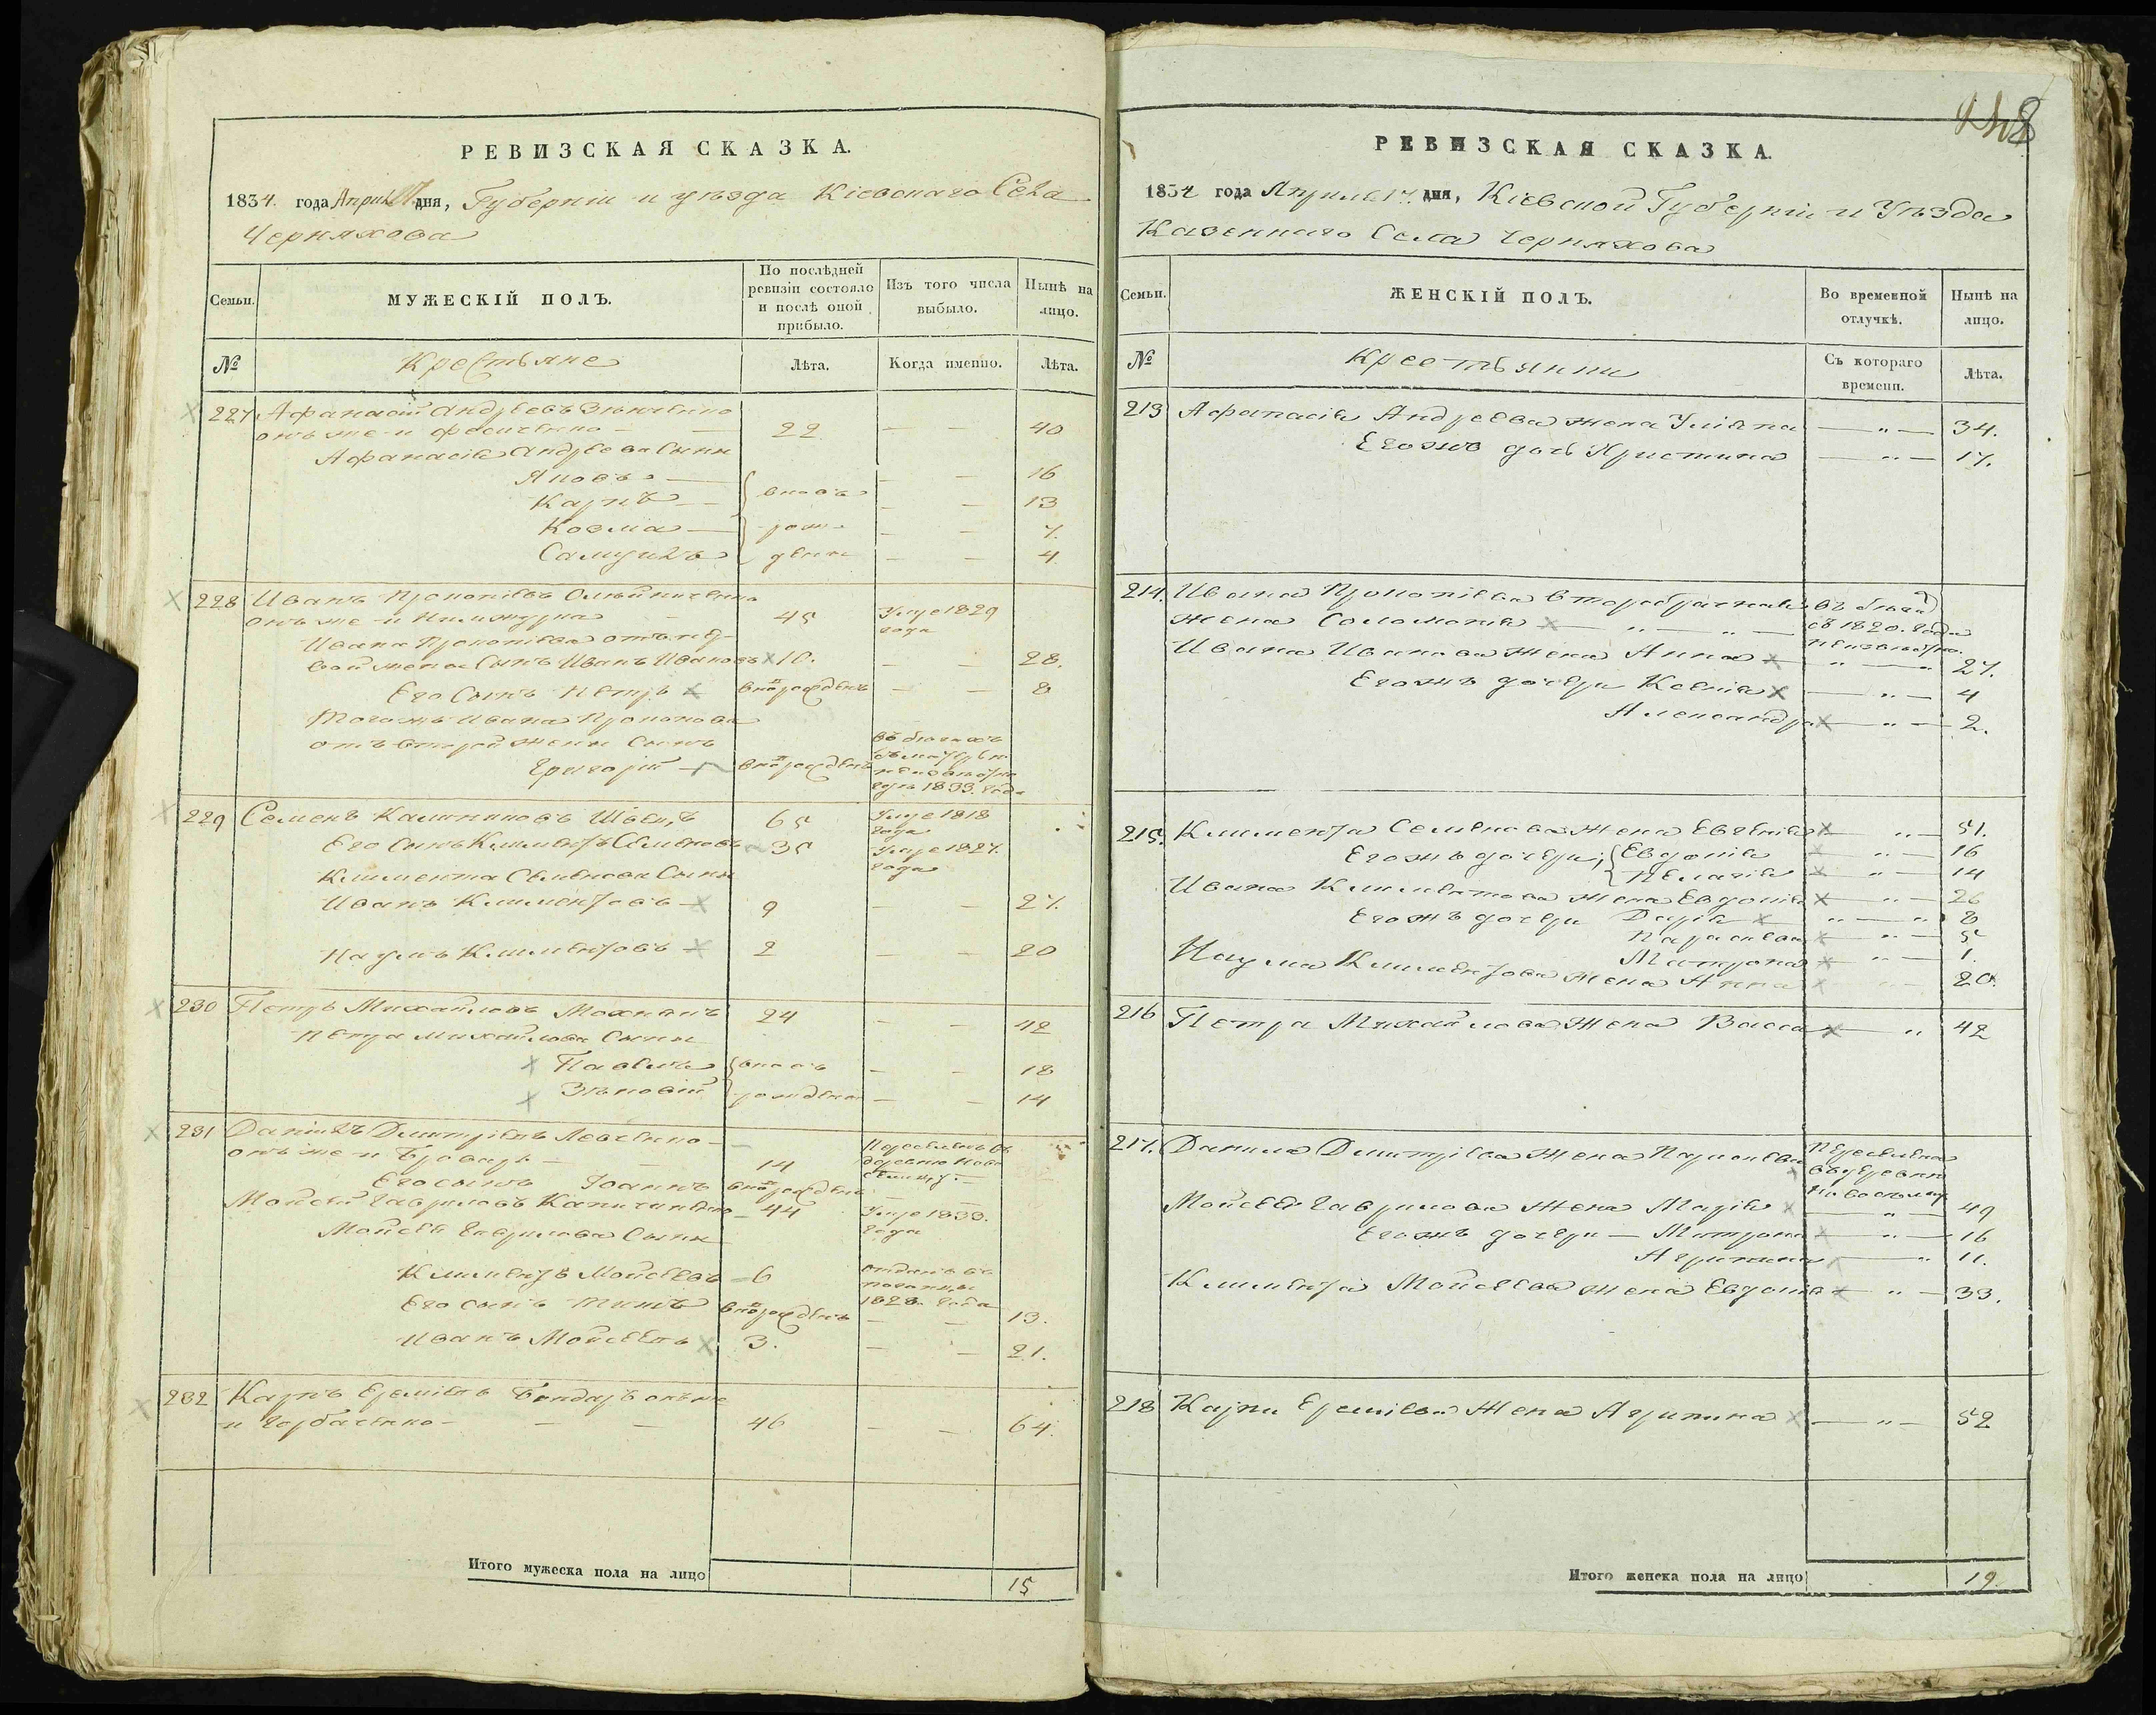 РЕВИЗСКАЯ СКАЗКА.
1834. года Април 17 дня, Губерніи и уѣзда Кіевскаго Села
Черняхова
Семьи.
МУЖЕСКІЙ ПОЛЪ.
По послѣдней ревизіи состояло и послѣ оной прибыло.
Изъ того числа выбыло.
Нынѣ на лицо.
№
Крестьяне
Лѣта.
Когда именно.
Лѣта.
227 Афанасій Андреевъ
онъ же и 22 — — 40
Афанасія Андреева сыны
Яковъ — — — 16
Карпъ — вновь — — 13
Козма — рож- — — 7.
Самуилъ дены — — 4
228 Иванъ Прокопіевъ
онъ же и 45 Умре 1829 года
Ивана Прокопіева отъ пер-
вой жены сынъ Иванъ Ивановъ 10. — — 28.
Его сынъ Петръ вновь рожденъ — — 8
Тогожъ Ивана Прокопова
отъ второй жены сынъ
Григорій — вновь рожденъ въ бѣгахъ съ матерью 1833. года
229 Семенъ Калениковъ Швецъ 65 Умре 1818 года
Его сынъ Климентъ Семеновъ 35 Умре 1827. года
Климента Семенова сыны
Иванъ Климентовъ — 9 — — 27.
Наумъ Климентовъ — 2 — — 20
230 Петръ Михайловъ 24 — — 42
Петра Михайлова сыны
Павелъ вновь — — 18
Зѣновій рождены — — 14
231 Даніилъ Дмитріевъ
онъ же и Броварь — — 14 Переселенъ въ деревню Ново
Его сынъ Іоаннъ вновь рожденъ —
Мойсей Гавриловъ 44 Умре 1833. года
Мойсея Гаврилова сыны
Климентъ Мойсеевъ — 6 отданъ въ 1828. года
Его сынъ Титъ вновь рожденъ — — 13.
Иванъ Мойсеевъ 3. — — 21.
232 Карпъ Ереміевъ Бондарь онъ же
и Горбаченко — — — 46 — — 64.
Итого мужеска пола на лицо 15
РЕВИЗСКАЯ СКАЗКА.
1834 года Апрыля 17. дня, Кіевской Губерніи и Уѣзда
Казеннаго Села Черняхова
Семьи.
ЖЕНСКІЙ ПОЛЪ.
Во временной отлучкѣ.
Нынѣ на лицо.
№
Крестьянки
Съ котораго времени.
Лѣта.
213 Афанасія Андреева жена Уліяна — " — 34.
Егожъ дочь Христина — " — 17.
214. Ивана Прокопіева второбрачная въ бѣгахъ
жена Соломонія — " — " — съ 1820. года
Ивана Иванова жена Анна — " — " 27.
Егожъ дочери Ксенія — " — 4
Александра — " — 2.
215. Климента Семенова жена Евгенія — " — 51.
Егожъ дочери, Евдокія — " — 16
Пелагія — " — 14
Ивана Климентова жена Евдокія — " — 26
Егожъ дочери Дарія — " — " 8
Параскева — " — 5
Матрона — " — 1
Наума Климентова жена Анна — " — 20.
216 Петра Михайлова жена Васса — " 42
217. Данила Дмитріева жена Параскева Переселена въ деревню
Мойсея Гаврилова жена Марія — " — 49
Егожъ дочери — Матрона — " — 16
Агрипина — " 11.
Климента Мойсеева жена Евдокія — " — 33.
218 Карпа Ереміева жена Агрипина — " — 52
Итого женска пола на лицо 19.